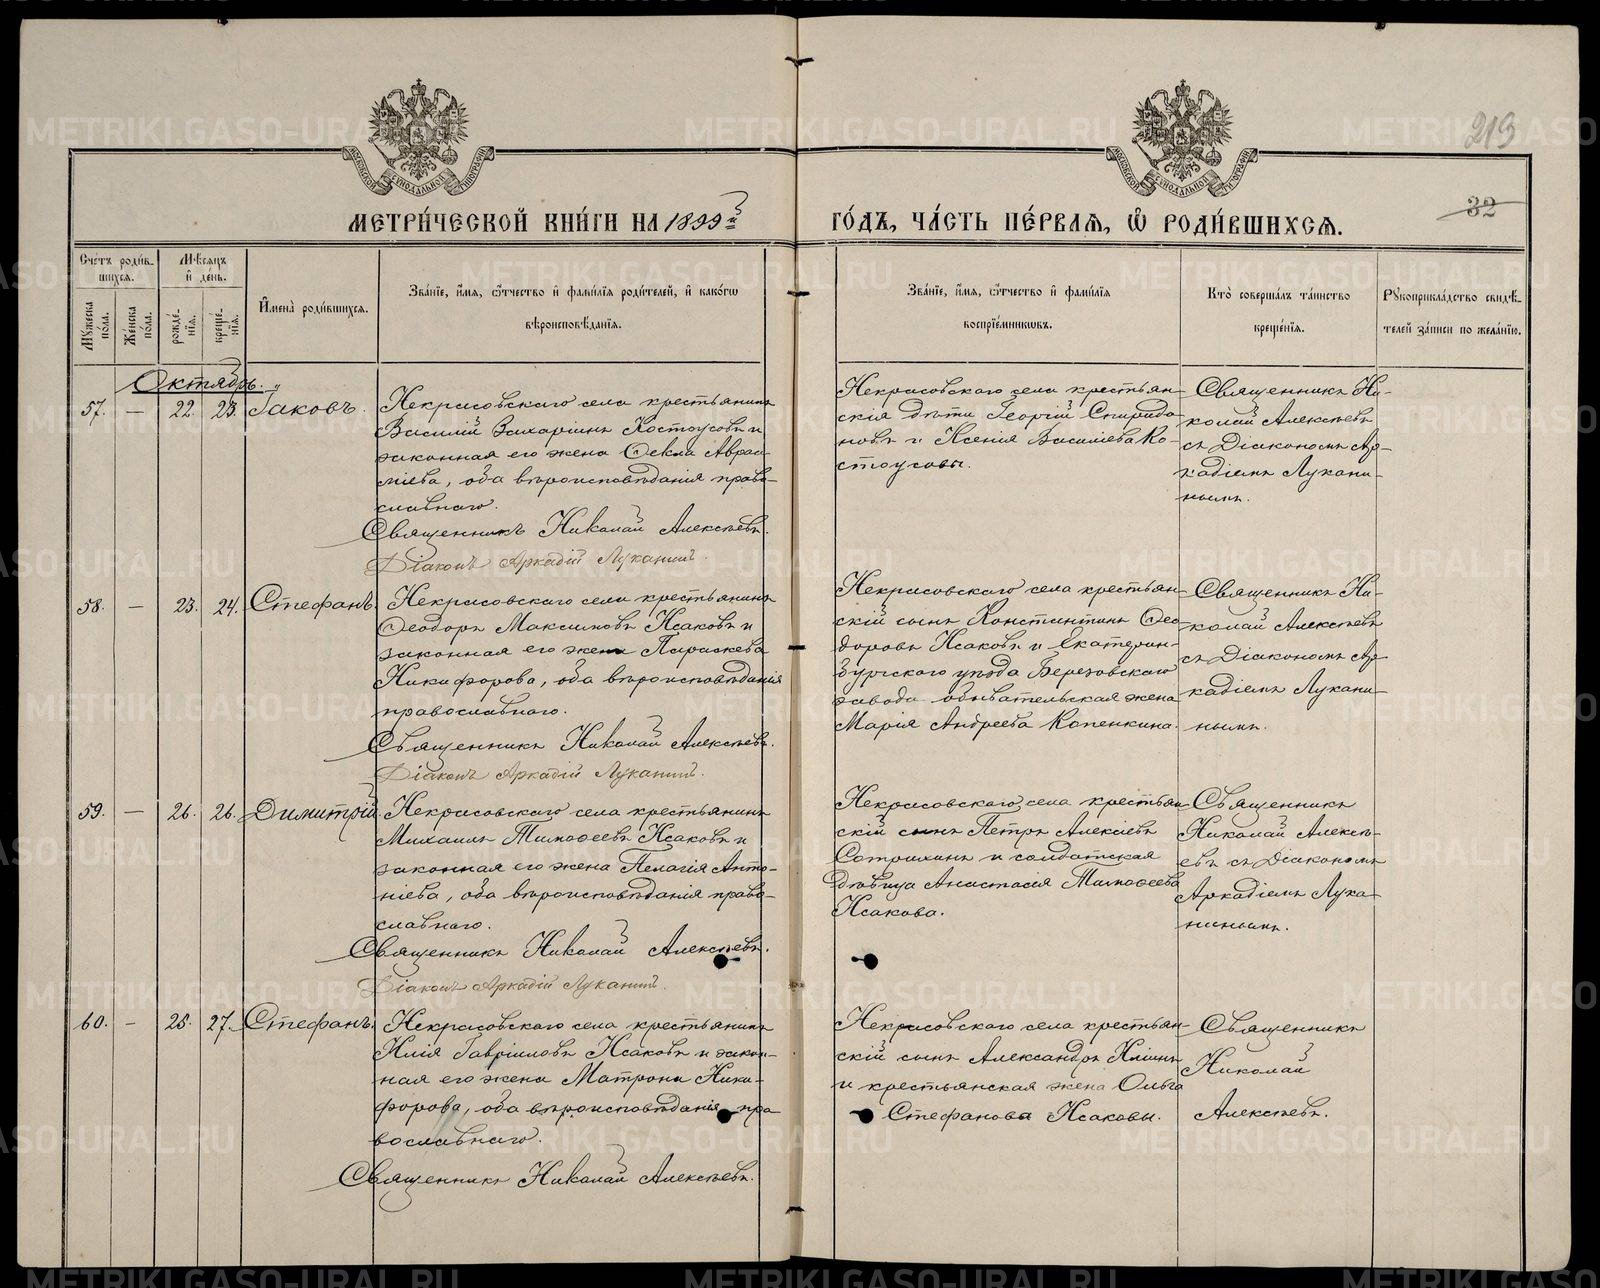 213
32
МЕТРИ́ЧЕСКОЙ КНИ́ГИ НА 1899й
ГО́ДЪ, ЧА́СТЬ ПЕ́РВАЯ, Ѡ҆ РОДИ́ВШИХСЯ.
Сче́тъ роди́в-
шихся.
Мѣ́сяцъ
и҆ де́нь.
Мꙋ́жеска
по́ла.
Же́нска
по́ла.
рожде́-
нїя.
креще́-
нїя.
И҆мена̀ роди́вшихся.
Зва́нїе, и҆́мя, ѻ҆́тчество и҆ фами́лїя роди́телей, и҆ како́гѡ
вѣроисповѣ́данїя.
Зва́нїе, и҆́мя, ѻ҆́тчество и҆ фами́лїя
воспрїе́мниковъ.
Кто̀ соверша́лъ та́инство
креще́нїя.
Рꙋкоприкла́дство свидѣ́-
телей за́писи по жела́нїю.
Октябрь.
57. — 22. 23. Іаковъ.
Некрасовскаго села крестьянинъ
Василій Захаріинъ Костоусовъ и
законная его жена Ѳекла Авраа-
міева, оба вѣроисповѣданія право-
славнаго.
Священникъ Николай Алексѣевъ.
Діаконъ Аркадій Луканинъ.
Некрасовскаго села крестьян-
скія дѣти Георгій Спиридо-
новъ и Ксенія Василіева Ко-
стоусовы.
Священникъ Ни-
колай Алексѣевъ
съ Діакономъ Ар-
кадіемъ Лукани-
нымъ.
58. — 23. 24. Стефанъ.
Некрасовскаго села крестьянинъ
Ѳеодоръ Максимовъ Исаковъ и
законная его жена Параскева
Никифорова, оба вѣроисповѣданія
православнаго.
Священникъ Николай Алексѣевъ.
Діаконъ Аркадій Луканинъ.
Некрасовскаго села крестьян-
скій сынъ Константинъ Ѳео-
доровъ Исаковъ и Екатерин-
бургскаго уѣзда Березовскаго
завода обывательская жена
Марія Андреева Копенкина.
Священникъ Ни-
колай Алексѣевъ
съ Діакономъ Ар-
кадіемъ Лукани-
нымъ.
59. — 26. 26. Димитрій.
Некрасовскаго села крестьянинъ
Михаилъ Тимоѳеевъ Исаковъ и
законная его жена Пелагія Анто-
ніева, оба вѣроисповѣданія право-
славнаго.
Священникъ Николай Алексѣевъ.
Діаконъ Аркадій Луканинъ.
Некрасовскаго села крестьян-
скій сынъ Петръ Алексіевъ
Сотрихинъ и солдатская
дѣвица Анастасія Тимоѳеева
Исакова.
Священникъ
Николай Алексѣ-
евъ съ Діакономъ
Аркадіемъ Лука-
нинымъ.
60. — 25. 27. Стефанъ.
Некрасовскаго села крестьянинъ
Илія Гавріиловъ Исаковъ и закон-
ная его жена Матрона Ники-
форова, оба вѣроисповѣданія пра-
вославнаго.
Священникъ Николай Алексѣевъ.
Некрасовскаго села крестьян-
скій сынъ Александръ Иліинъ
и крестьянская жена Ольга
Стефанова Исаковы.
Священникъ
Николай
Алексѣевъ.